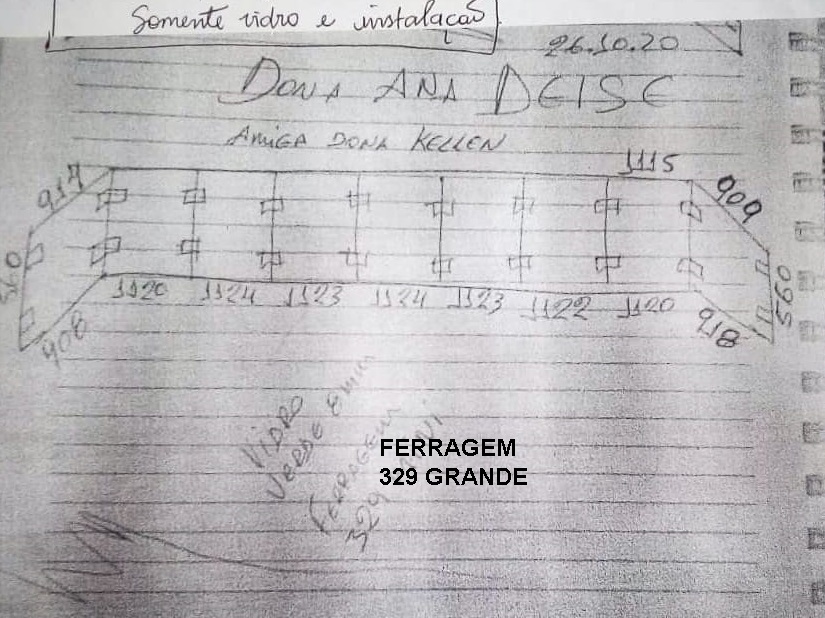 Somente vidro e instalação
26.10.20
DONA ANA DEISE
AMIGA DONA KELLEN
1115
917
909
560
595
1120 1124 1123 1124 1123 1122 1120
908
918
VIDRO
VERDE 8 mm
FERRAGEM
329
FERRAGEM
329 GRANDE